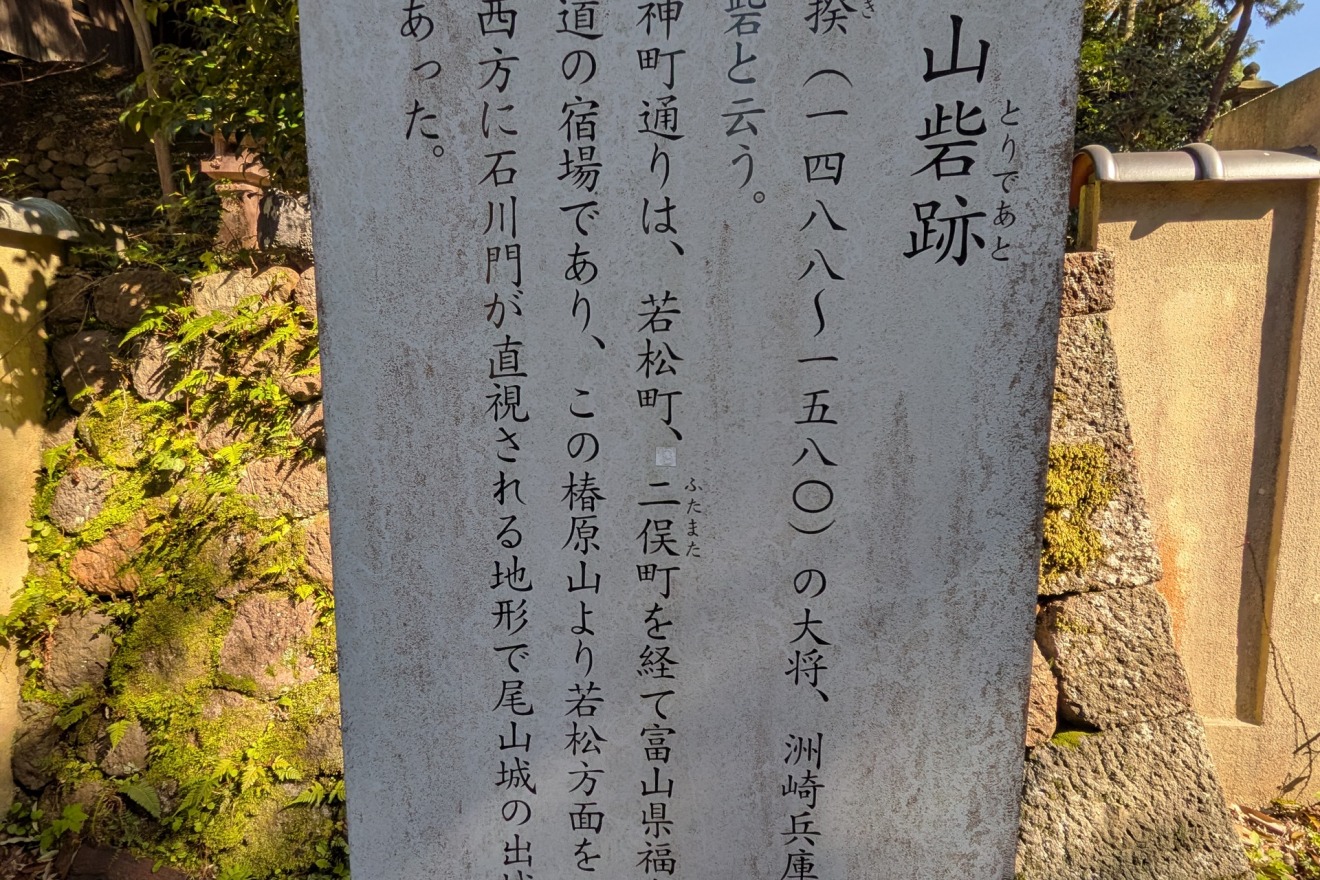 山砦跡
とりであと
揆（一四八八〜一五八〇）の大将、洲崎兵庫
き
砦と云う。
神町通りは、若松町、二俣町を経て富山県福
ふたまた
道の宿場であり、この椿原山より若松方面を
西方に石川門が直視される地形で尾山城の出
あった。